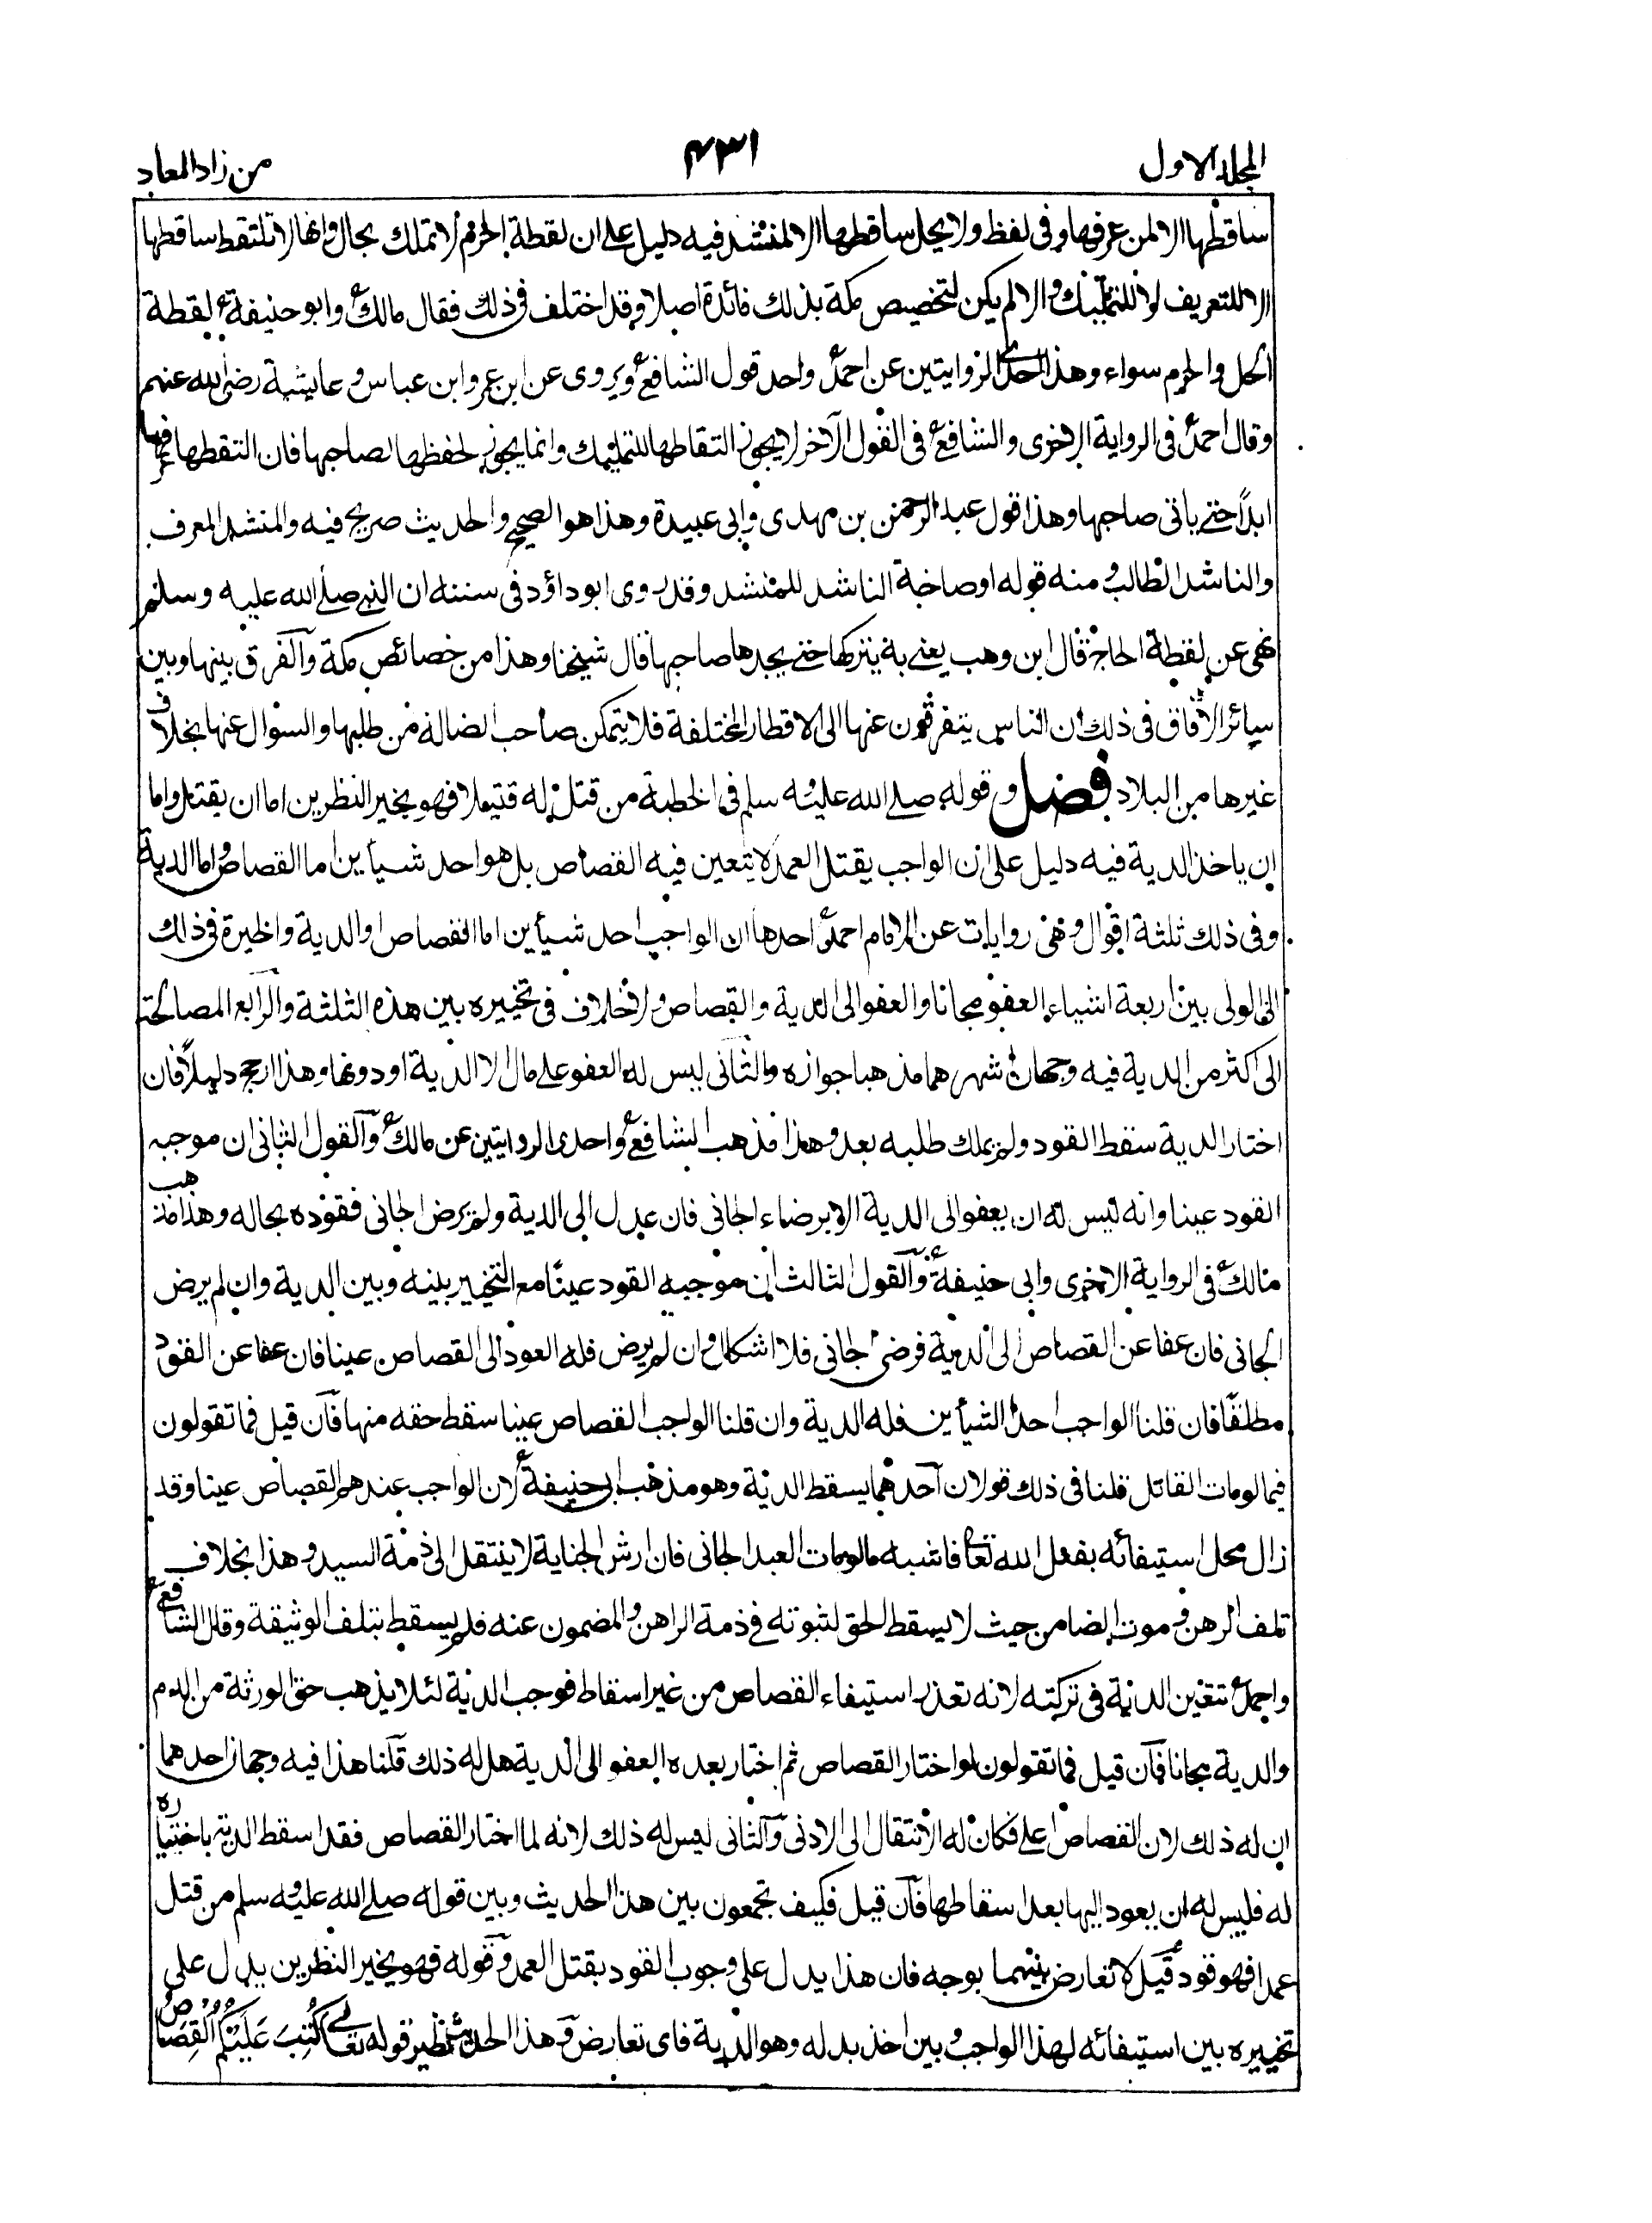 المجلد الاول
۴۳۱
من زاد المعاد
ساقطها الا لمن عرفها وفى لفظ ولا يحل ساقطها الا لمنشد فيه دليل على ان لقطة الحرم لا تملك بحال وانها لا تلتقط ساقطها
الا للتعريف لا للتمليك والا لم يكن لتخصيص مكة بذلك فائدة اصلا وقد اختلف فى ذلك فقال مالكؒ وابو حنيفةؒ لقطة
الحل والحرم سواء وهذا احدى الروايتين عن احمدؒ واحد قول الشافعؒ ويروى عن ابن عمر وابن عباس وعايشة رضى الله عنهم
وقال احمدؒ فى الرواية الاخرى والشافعؒ فى القول الآخر لا يجوز التقاطها للتمليك وانما يجوز لحفظها لصاحبها فان التقطها عرفها
ابدًا حتى ياتى صاحبها وهذا قول عبد الرحمن بن مهدى وابى عبيدة وهذا هو الصحيح والحديث صريح فيه والمنشد المعرف
والناشد الطالب ومنه قوله اوصاخة الناشد للمنشد وقد روى ابو داؤد فى سننه ان النبى صلى الله عليه وسلم
نهى عن لقطة الحاج قال ابن وهب يعنے به يتركها حتى يجدها صاحبها قال شيخنا وهذا من خصائص مكة والفرق بينها وبين
سائر الآفاق فى ذلك ان الناس يتفرقون عنها الى الاقطار المختلفة فلا يتمكن صاحب الضالة من طلبها والسؤال عنها بخلاف
غيرها من البلاد فصل و قوله صلى الله عليه وسلم فى الخطبة من قتل له قتيلا فهو بخير النظرين اما ان يقتل واما
ان ياخذ الدية فيه دليل على ان الواجب بقتل العمد لا يتعين فيه القصاص بل هو احد شيأين اما القصاص واما الدية
وفى ذلك ثلثة اقوال وهى روايات عن الامام احمدؒ احدها ان الواجب احد شيأين اما القصاص او الدية والخيرة فى ذلك
الى الولى بين اربعة اشياء العفو مجانا والعفو الى الدية والقصاص ولا خلاف فى تخييره بين هذه الثلثة والرابع المصالحة
الى اكثر من الدية فيه وجهان اشهرهما مذهبا جوازه والثانى ليس له العفو على مال الا الدية او دونها وهذا ارجح دليلاً فان
اختار الدية سقط القود ولم يملك طلبه بعد وهذا مذهب الشافعؒ واحدى الروايتين عن مالكؒ والقول الثانى ان موجبه
القود عينا وانه ليس له ان يعفو الى الدية الا برضاء الجانى فان عدل الى الدية ولم يرض الجانى فقوده بحاله وهذا مذهب
مالكؒ فى الرواية الاخرى وابى حنيفةؒ والقول الثالث ان موجبه القود عينًا مع التخيير بينه وبين الدية وان لم يرض
الجانى فان عفا عن القصاص الى الدية فرضى الجانى فلا اشكال وان لم يرض فله العود الى القصاص عينا فان عفا عن القود
مطلقًا فان قلنا الواجب احد الشيأين فله الدية وان قلنا الواجب القصاص عينا سقط حقه منها فان قيل فما تقولون
فيما لو مات القاتل قلنا فى ذلك قولان احدهما يسقط الدية وهو مذهب ابى حنيفةؒ لان الواجب عندهم القصاص عينا وقد
زال محل استيفائه بفعل الله تعالى فاشبه ما لو مات العبد الجانى فان ارش الجناية لا ينتقل الى ذمة السيد وهذا بخلاف
تلف الرهن وموت الضامن حيث لا يسقط الحق لثبوته فى ذمة الراهن والمضمون عنه فلم يسقط بتلف الوثيقة وقال الشافعؒ
واحمدؒ تتعين الدية فى تركته لانه تعذر استيفاء القصاص من غير اسقاط فوجب الدية لئلا يذهب حق الورثة من الدم
والدية مجانا فان قيل فما تقولون لو اختار القصاص ثم اختار بعده العفو الى الدية هل له ذلك قلنا هذا فيه وجهان احدهما
ان له ذلك لان القصاص اعلى فكان له الانتقال الى الادنى والثانى ليس له ذلك لانه لما اختار القصاص فقد اسقط الدية باختياره
له فليس له ان يعود اليها بعد اسقاطها فان قيل فكيف تجمعون بين هذا الحديث وبين قوله صلى الله عليه وسلم من قتل
عمدا فهو قود قيل لا تعارض بينهما بوجه فان هذا يدل على وجوب القود بقتل العمد وقوله فهو بخير النظرين يدل على
تخييره بين استيفائه لهذا الواجب وبين اخذ بدله وهو الدية فاى تعارض وهذا الحديث نظير قوله تعالى كُتِبَ عَلَيْكُمُ الْقِصَاصُ